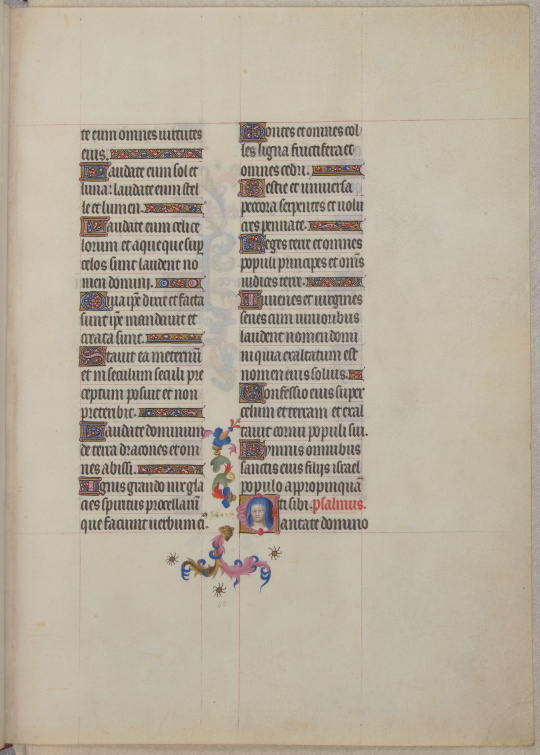 te eum omnes uirtutes
eius.
Laudate eum sol et
luna: laudate eum stel
le et lumen.
Laudate eum celi ce
lorum et aque que sup
celos sunt laudent no
men domini.
Quia ipe dixit et facta
sunt ipe mandauit et
creata sunt.
Statuit ea in eternũ
et in seculum seculi pre
ceptum posuit et non
preteribit.
Laudate dominum
de terra dracones et om
nes abissi.
Ignis grando nix gla
cies spiritus procellarũ
que faciunt uerbum ei
Montes et omnes col
les ligna fructifera et
omnes cedri.
Bestie et uniuersa
pecora serpentes et uolu
cres pennate.
Reges terre et omnes
populi principes et om̃s
iudices terre.
Iuuenes et uirgines
senes cum iunioribus
laudent nomen domi
ni quia exaltatum est
nomen eius solius.
Confessio eius super
celum et terram et exal
tauit cornu populi sui.
Hymnis omnibus
sanctis eius filijs israel
populo appropinquã
ti sibi. psalmus.
Cantate domino